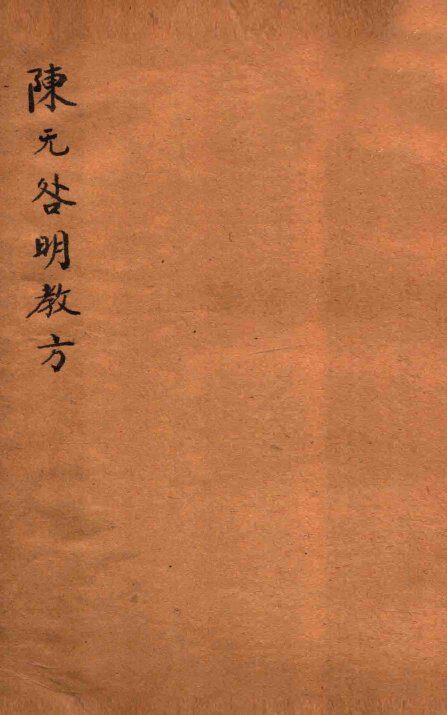 陳无咎明教方